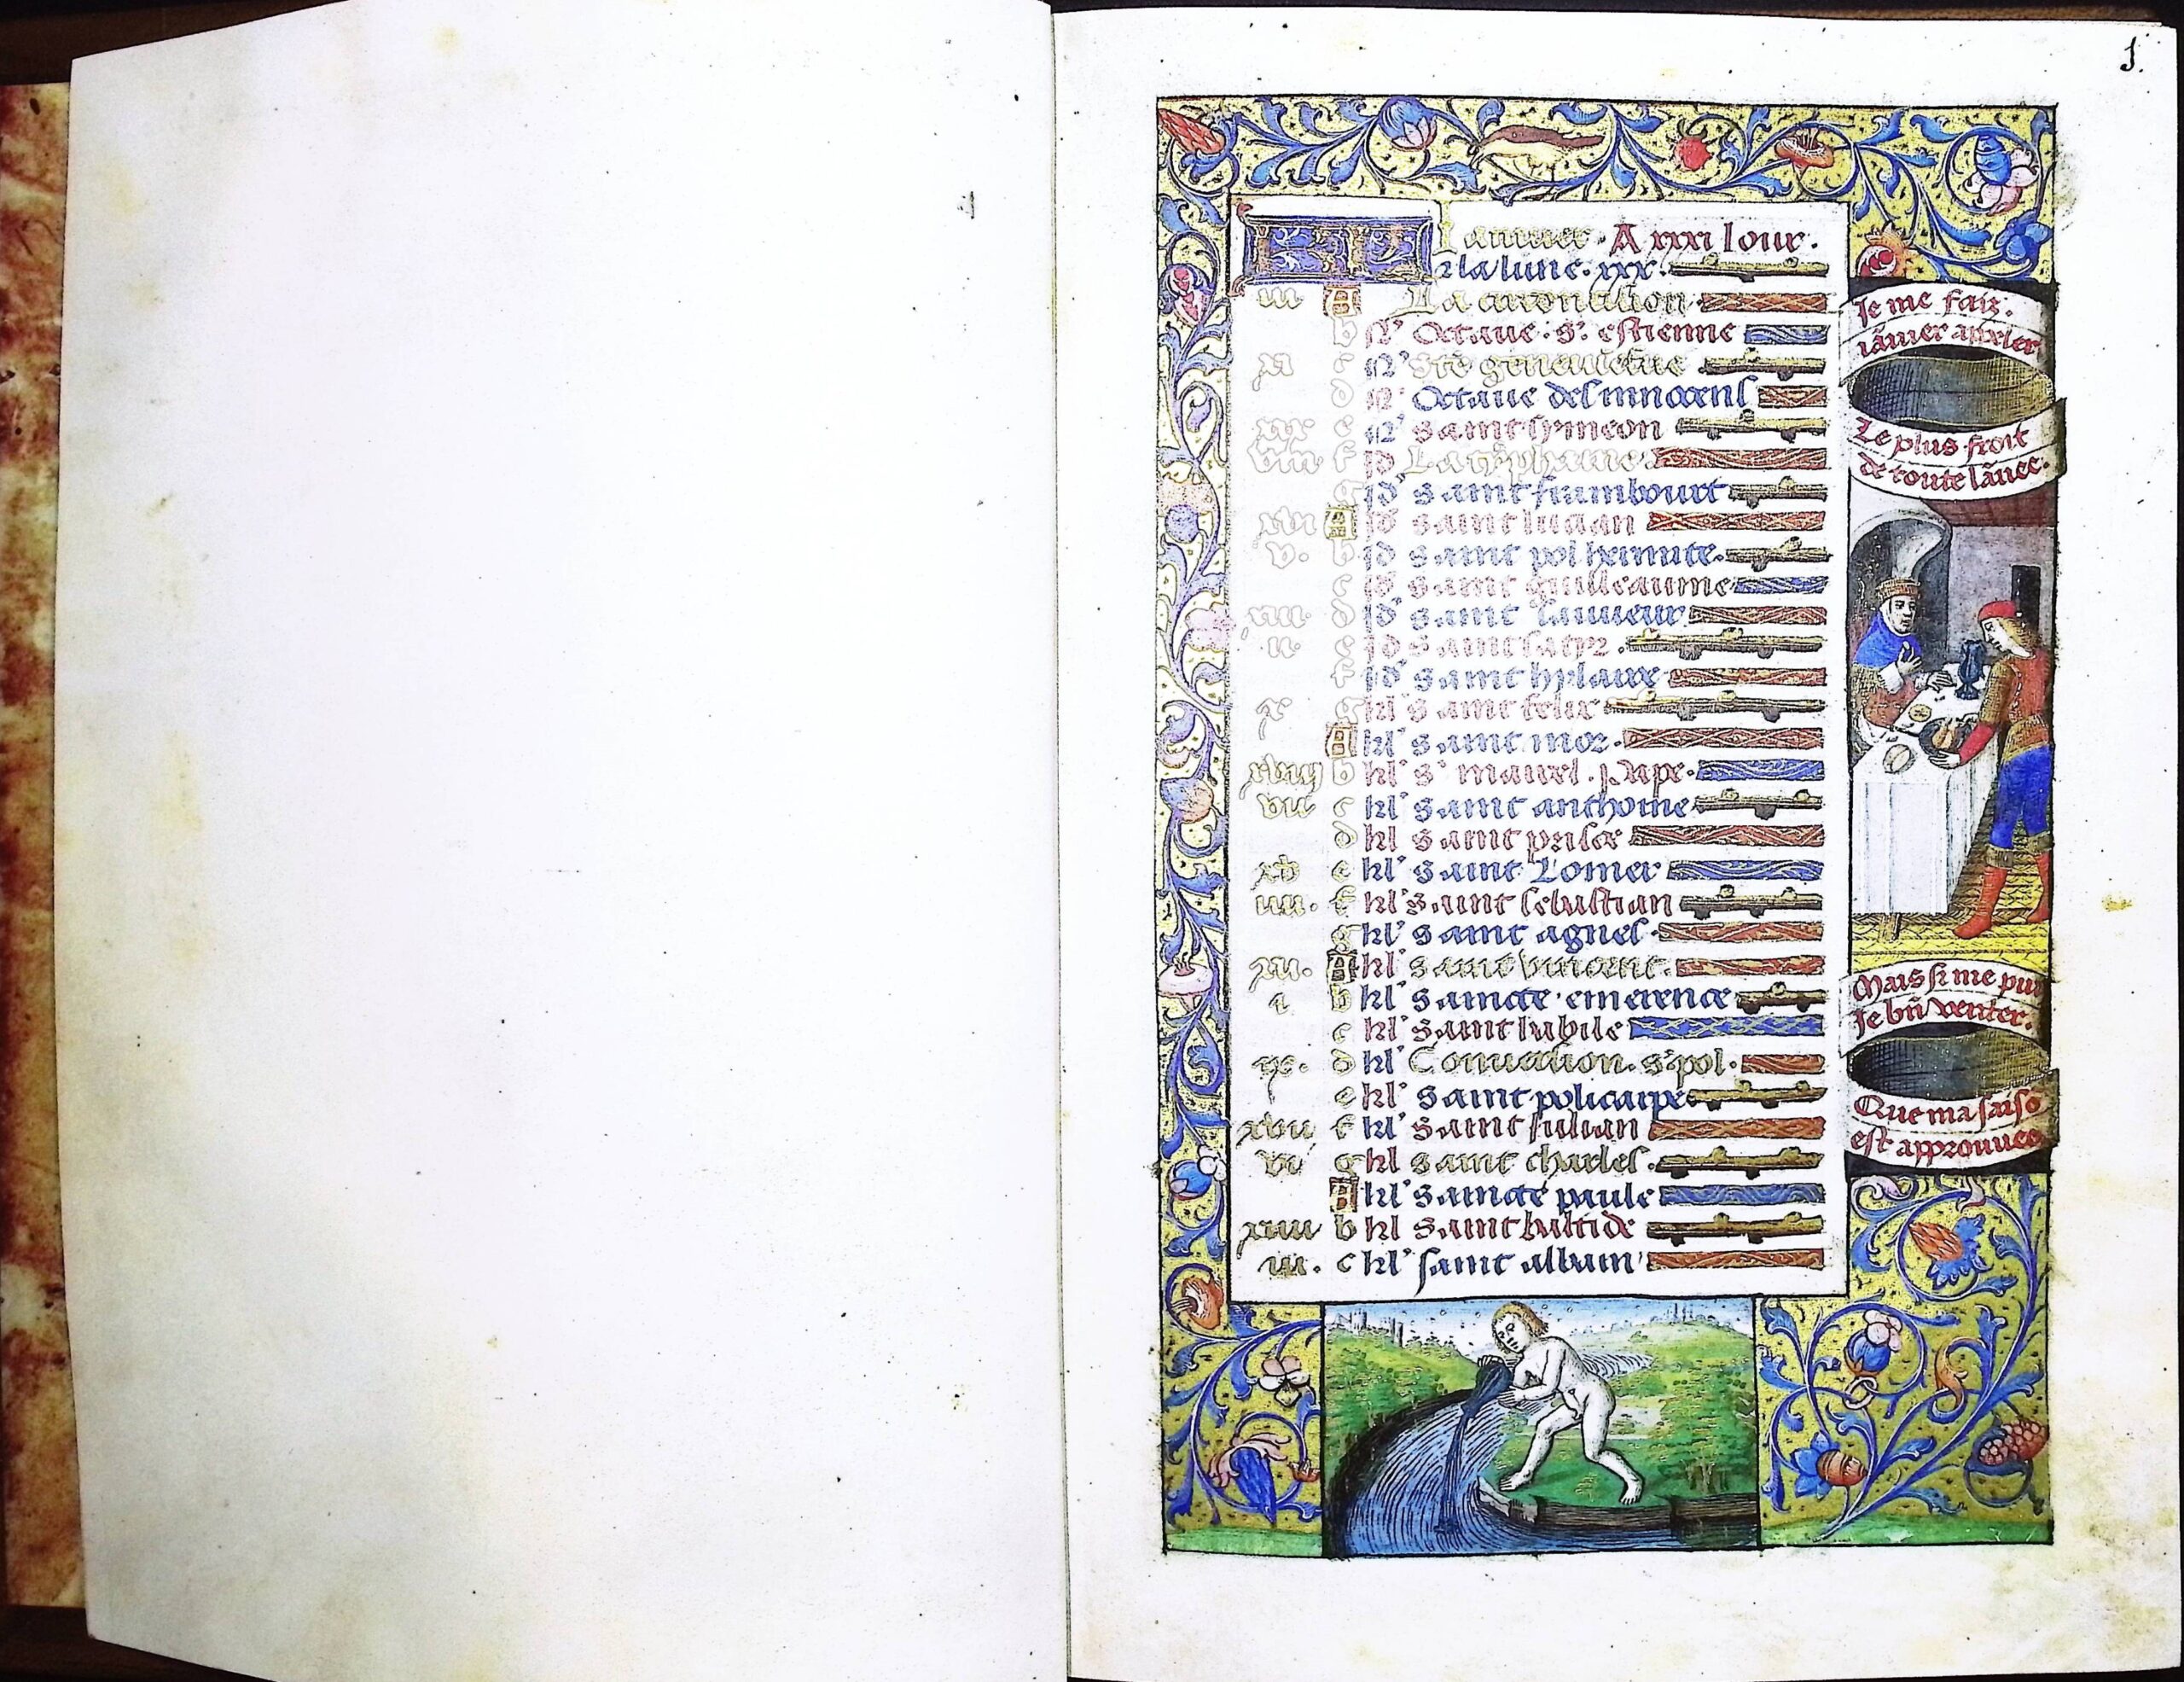 1.
Ianuier. A xxxi Iour.
Et la lune. xxx.
iii A La circoncision
b N' Octaue. s'. estienne
xi c N' Ste geneuiefue
d N' Octaue des innocens
xix e N' saint symeon
viii f id La tiphaine
g id' saint frambourt
xvi A id' saint lucian
v. b id saint pol hermite.
c id' saint guilleaume
xiii d id' saint sauueur
ii e id saint satir.
f id' saint hylaire
x g kl' saint felix
A kl' saint mor.
xviij b kl' s' marcel. pape.
vii c kl' saint anthoine
d kl saint prisce
xv e kl' saint Lomer
iiii. f kl' saint sebastian
g kl' saint agnes.
xii. A kl' saint vincent.
i b kl' saincte emerence
c kl' saint babile
ix. d kl' Conuercion. s'. pol.
e kl' saint policarpe
xvii f kl' saint Iulian
vi g kl saint charles.
A kl' saincte paule
xiiii b kl saint baltide
iii. c kl' saint albain
Je me faiz.
iãuier appeler
Le plus froit
de toute lãnee.
Mais si me puis
Je bñ venter.
Que ma saisõ
est approuuee